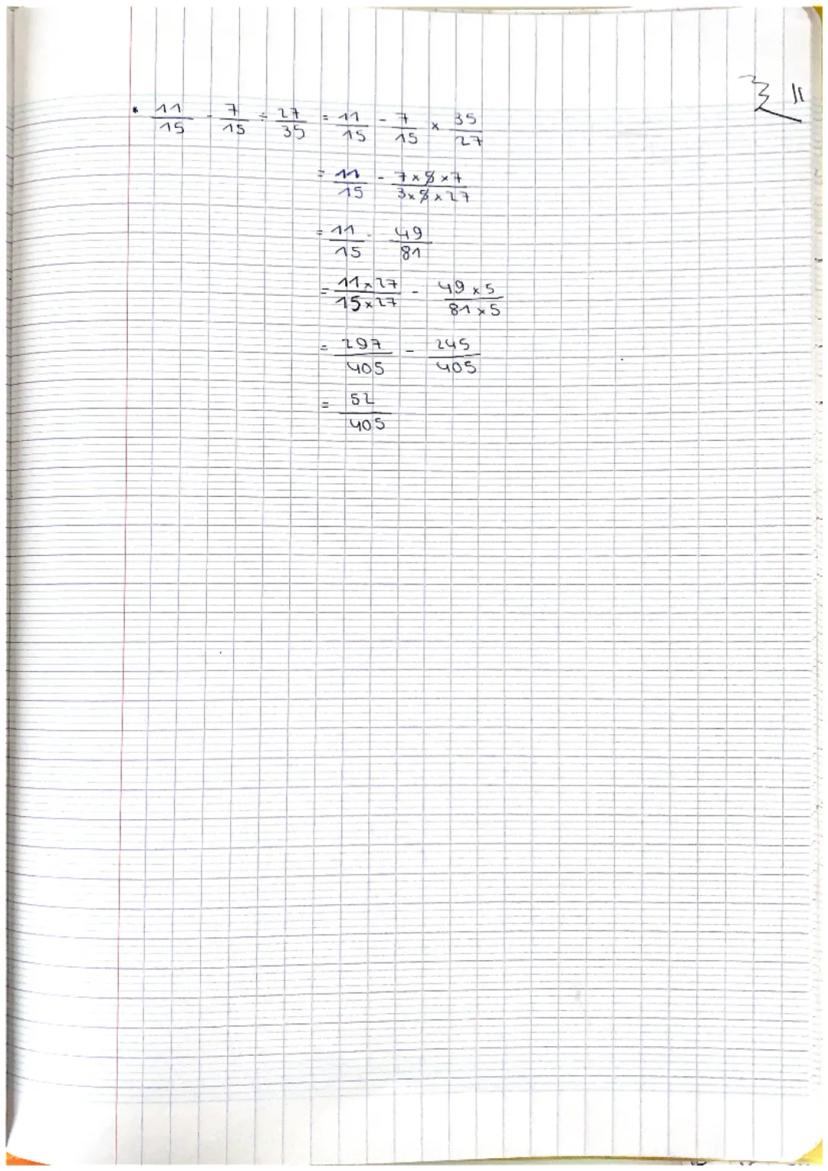 • 11/15 - 7/15 ÷ 27/35 = 11/15 - 7/15 × 35/27
= 11/15 - 7×5×7/3×5×27
= 11/15 - 49/81
= 11×27/15×27 - 49×5/81×5
= 297/405 - 245/405
= 52/405